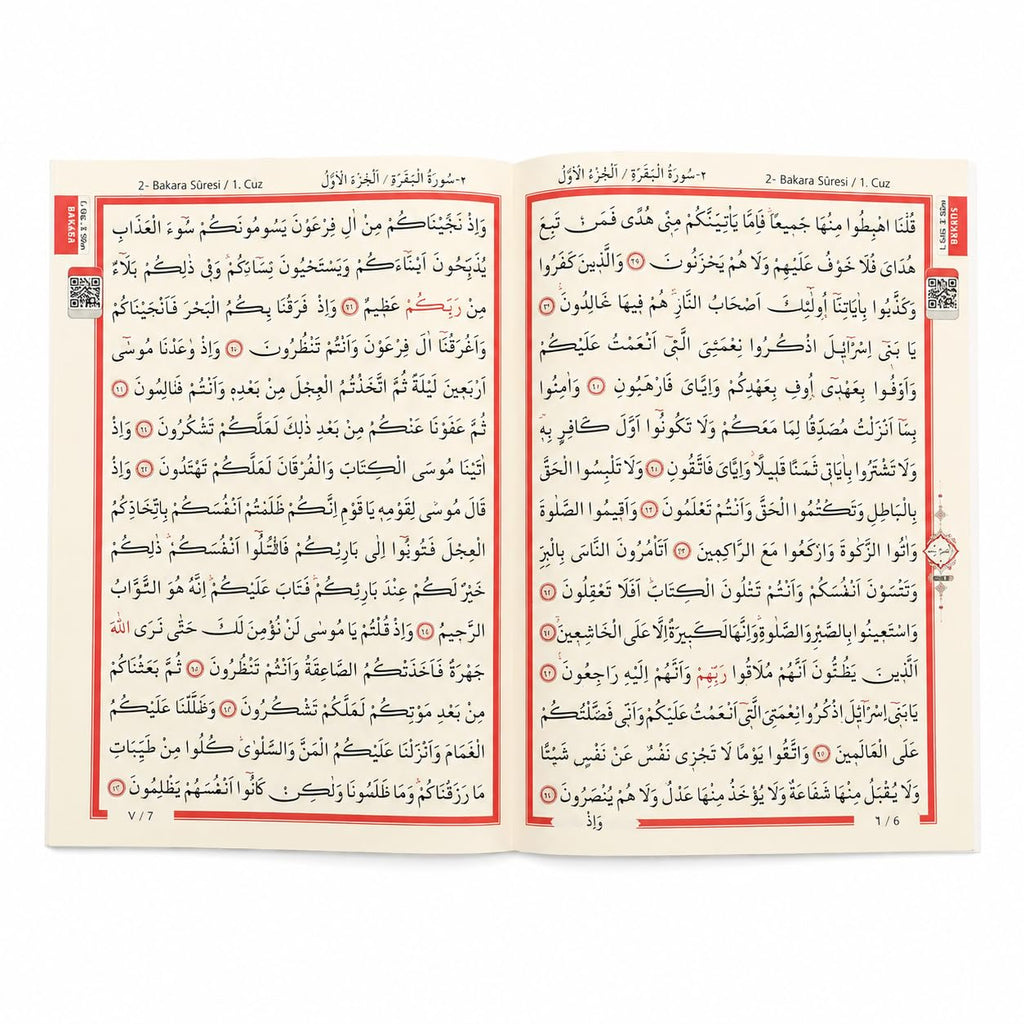 ٢-سُورَةُ الْبَقَرَةِ / اَلْجُزْءُ الْاَوَّلُ
2- Bakara Sûresi / 1. Cuz
قُلْنَا اهْبِطُوا مِنْهَا جَمٖيعًاۚ فَاِمَّا يَاْتِيَنَّكُمْ مِنّٖى هُدًى فَمَنْ تَبِعَ
هُدَاىَ فَلَا خَوْفٌ عَلَيْهِمْ وَلَا هُمْ يَحْزَنُونَ وَالَّذٖينَ كَفَرُوا
وَكَذَّبُوا بِاٰيَاتِنَٓا اُو۬لٰٓئِكَ اَصْحَابُ النَّارِۚ هُمْ فٖيهَا خَالِدُونَ
يَا بَنٖٓى اِسْرَٓائٖلَ اذْكُرُوا نِعْمَتِىَ الَّتٖٓى اَنْعَمْتُ عَلَيْكُمْ
وَاَوْفُوا بِعَهْدٖٓى اُو۫فِ بِعَهْدِكُمْ وَاِيَّاىَ فَارْهَبُونِ وَاٰمِنُوا
بِمَٓا اَنْزَلْتُ مُصَدِّقًا لِمَا مَعَكُمْ وَلَا تَكُونُٓوا اَوَّلَ كَافِرٍ بِهٖ
وَلَا تَشْتَرُوا بِاٰيَاتٖى ثَمَنًا قَلٖيلًا وَاِيَّاىَ فَاتَّقُونِ وَلَا تَلْبِسُوا الْحَقَّ
بِالْبَاطِلِ وَتَكْتُمُوا الْحَقَّ وَاَنْتُمْ تَعْلَمُونَ وَاَقٖيمُوا الصَّلٰوةَ
وَاٰتُوا الزَّكٰوةَ وَارْكَعُوا مَعَ الرَّاكِعٖينَ اَتَاْمُرُونَ النَّاسَ بِالْبِرِّ
وَتَنْسَوْنَ اَنْفُسَكُمْ وَاَنْتُمْ تَتْلُونَ الْكِتَابَ اَفَلَا تَعْقِلُونَ
وَاسْتَعٖينُوا بِالصَّبْرِ وَالصَّلٰوةِ وَاِنَّهَا لَكَبٖيرَةٌ اِلَّا عَلَى الْخَاشِعٖينَ
اَلَّذٖينَ يَظُنُّونَ اَنَّهُمْ مُلَاقُوا رَبِّهِمْ وَاَنَّهُمْ اِلَيْهِ رَاجِعُونَ
يَا بَنٖٓى اِسْرَٓائٖلَ اذْكُرُوا نِعْمَتِىَ الَّتٖٓى اَنْعَمْتُ عَلَيْكُمْ وَاَنّٖى فَضَّلْتُكُمْ
عَلَى الْعَالَمٖينَ وَاتَّقُوا يَوْمًا لَا تَجْزٖى نَفْسٌ عَنْ نَفْسٍ شَيْئًا
وَلَا يُقْبَلُ مِنْهَا شَفَاعَةٌ وَلَا يُؤْخَذُ مِنْهَا عَدْلٌ وَلَا هُمْ يُنْصَرُونَ
وَاِذْ
٦ / 6
2- Bakara Sûresi / 1. Cuz
٢-سُورَةُ الْبَقَرَةِ / اَلْجُزْءُ الْاَوَّلُ
وَاِذْ نَجَّيْنَاكُمْ مِنْ اٰلِ فِرْعَوْنَ يَسُومُونَكُمْ سُٓوءَ الْعَذَابِ
يُذَبِّحُونَ اَبْنَٓاءَكُمْ وَيَسْتَحْيُونَ نِسَٓاءَكُمْ وَفٖى ذٰلِكُمْ بَلَٓاءٌ
مِنْ رَبِّكُمْ عَظٖيمٌ وَاِذْ فَرَقْنَا بِكُمُ الْبَحْرَ فَاَنْجَيْنَاكُمْ
وَاَغْرَقْنَٓا اٰلَ فِرْعَوْنَ وَاَنْتُمْ تَنْظُرُونَ وَاِذْ وٰعَدْنَا مُوسٰٓى
اَرْبَعٖينَ لَيْلَةً ثُمَّ اتَّخَذْتُمُ الْعِجْلَ مِنْ بَعْدِهٖ وَاَنْتُمْ ظَالِمُونَ
ثُمَّ عَفَوْنَا عَنْكُمْ مِنْ بَعْدِ ذٰلِكَ لَعَلَّكُمْ تَشْكُرُونَ وَاِذْ
اٰتَيْنَا مُوسَى الْكِتَابَ وَالْفُرْقَانَ لَعَلَّكُمْ تَهْتَدُونَ وَاِذْ
قَالَ مُوسٰى لِقَوْمِهٖ يَا قَوْمِ اِنَّكُمْ ظَلَمْتُمْ اَنْفُسَكُمْ بِاتِّخَاذِكُمُ
الْعِجْلَ فَتُوبُٓوا اِلٰى بَارِئِكُمْ فَاقْتُلُٓوا اَنْفُسَكُمْ ذٰلِكُمْ
خَيْرٌ لَكُمْ عِنْدَ بَارِئِكُمْ فَتَابَ عَلَيْكُمْ اِنَّهُ هُوَ التَّوَّابُ
الرَّحٖيمُ وَاِذْ قُلْتُمْ يَا مُوسٰى لَنْ نُؤْمِنَ لَكَ حَتّٰى نَرَى اللّٰهَ
جَهْرَةً فَاَخَذَتْكُمُ الصَّاعِقَةُ وَاَنْتُمْ تَنْظُرُونَ ثُمَّ بَعَثْنَاكُمْ
مِنْ بَعْدِ مَوْتِكُمْ لَعَلَّكُمْ تَشْكُرُونَ وَظَلَّلْنَا عَلَيْكُمُ
الْغَمَامَ وَاَنْزَلْنَا عَلَيْكُمُ الْمَنَّ وَالسَّلْوٰى كُلُوا مِنْ طَيِّبَاتِ
مَا رَزَقْنَاكُمْ وَمَا ظَلَمُونَا وَلٰكِنْ كَانُٓوا اَنْفُسَهُمْ يَظْلِمُونَ
٧ / 7